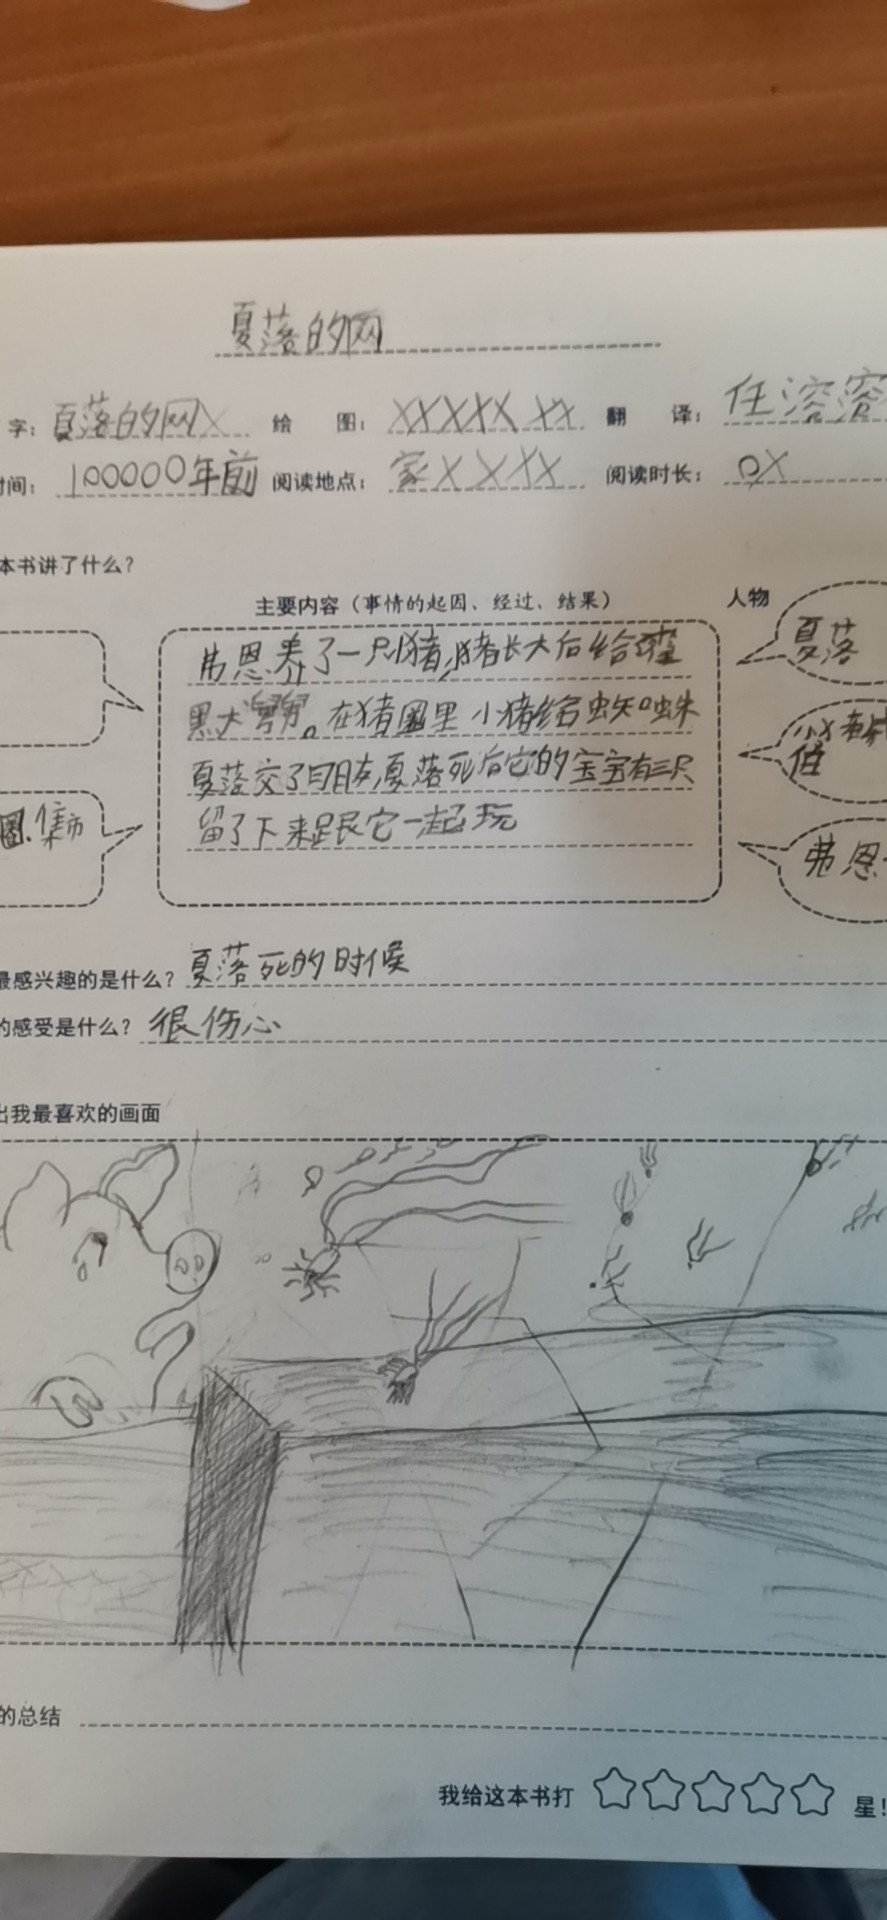 夏落的网
字：夏落的网X 绘 图：XXXXX XX 翻 译：任溶溶
时间：100000年前 阅读地点：家XXXX 阅读时长：0X
本书讲了什么？
主要内容（事情的起因、经过、结果） 人物
弗恩养了一只猪，猪长大后给霍
黑大舅舅。在猪圈里小猪给蜘蛛
夏落交了朋友，夏落死后它的宝宝有三只
留了下来跟它一起玩
夏落
小猪威
伯
弗恩
圈.集市
最感兴趣的是什么？夏落死的时候
的感受是什么？很伤心
出我最喜欢的画面
的总结
我给这本书打 星！